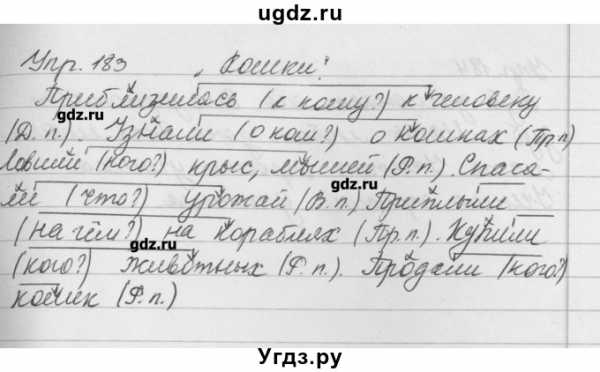 ugdz.ru
Упр. 183 „Кошки."
Приблизилась (к кому?) к человеку
(Д. п.). Узнали (о ком?) о кошках (Пр.п)
Ловили (кого?) крыс, мышей (Р. п.). Спаса-
ли (что?) урожай (В. п.) Приплыли
(на чём?) на кораблях (Пр. п.). Купили
(кого?) животных (Р. п.). Продали (кого?)
кошек (Р. п.)
gdz.ru
gdz.ru
gdz.ru
Угдз.ру